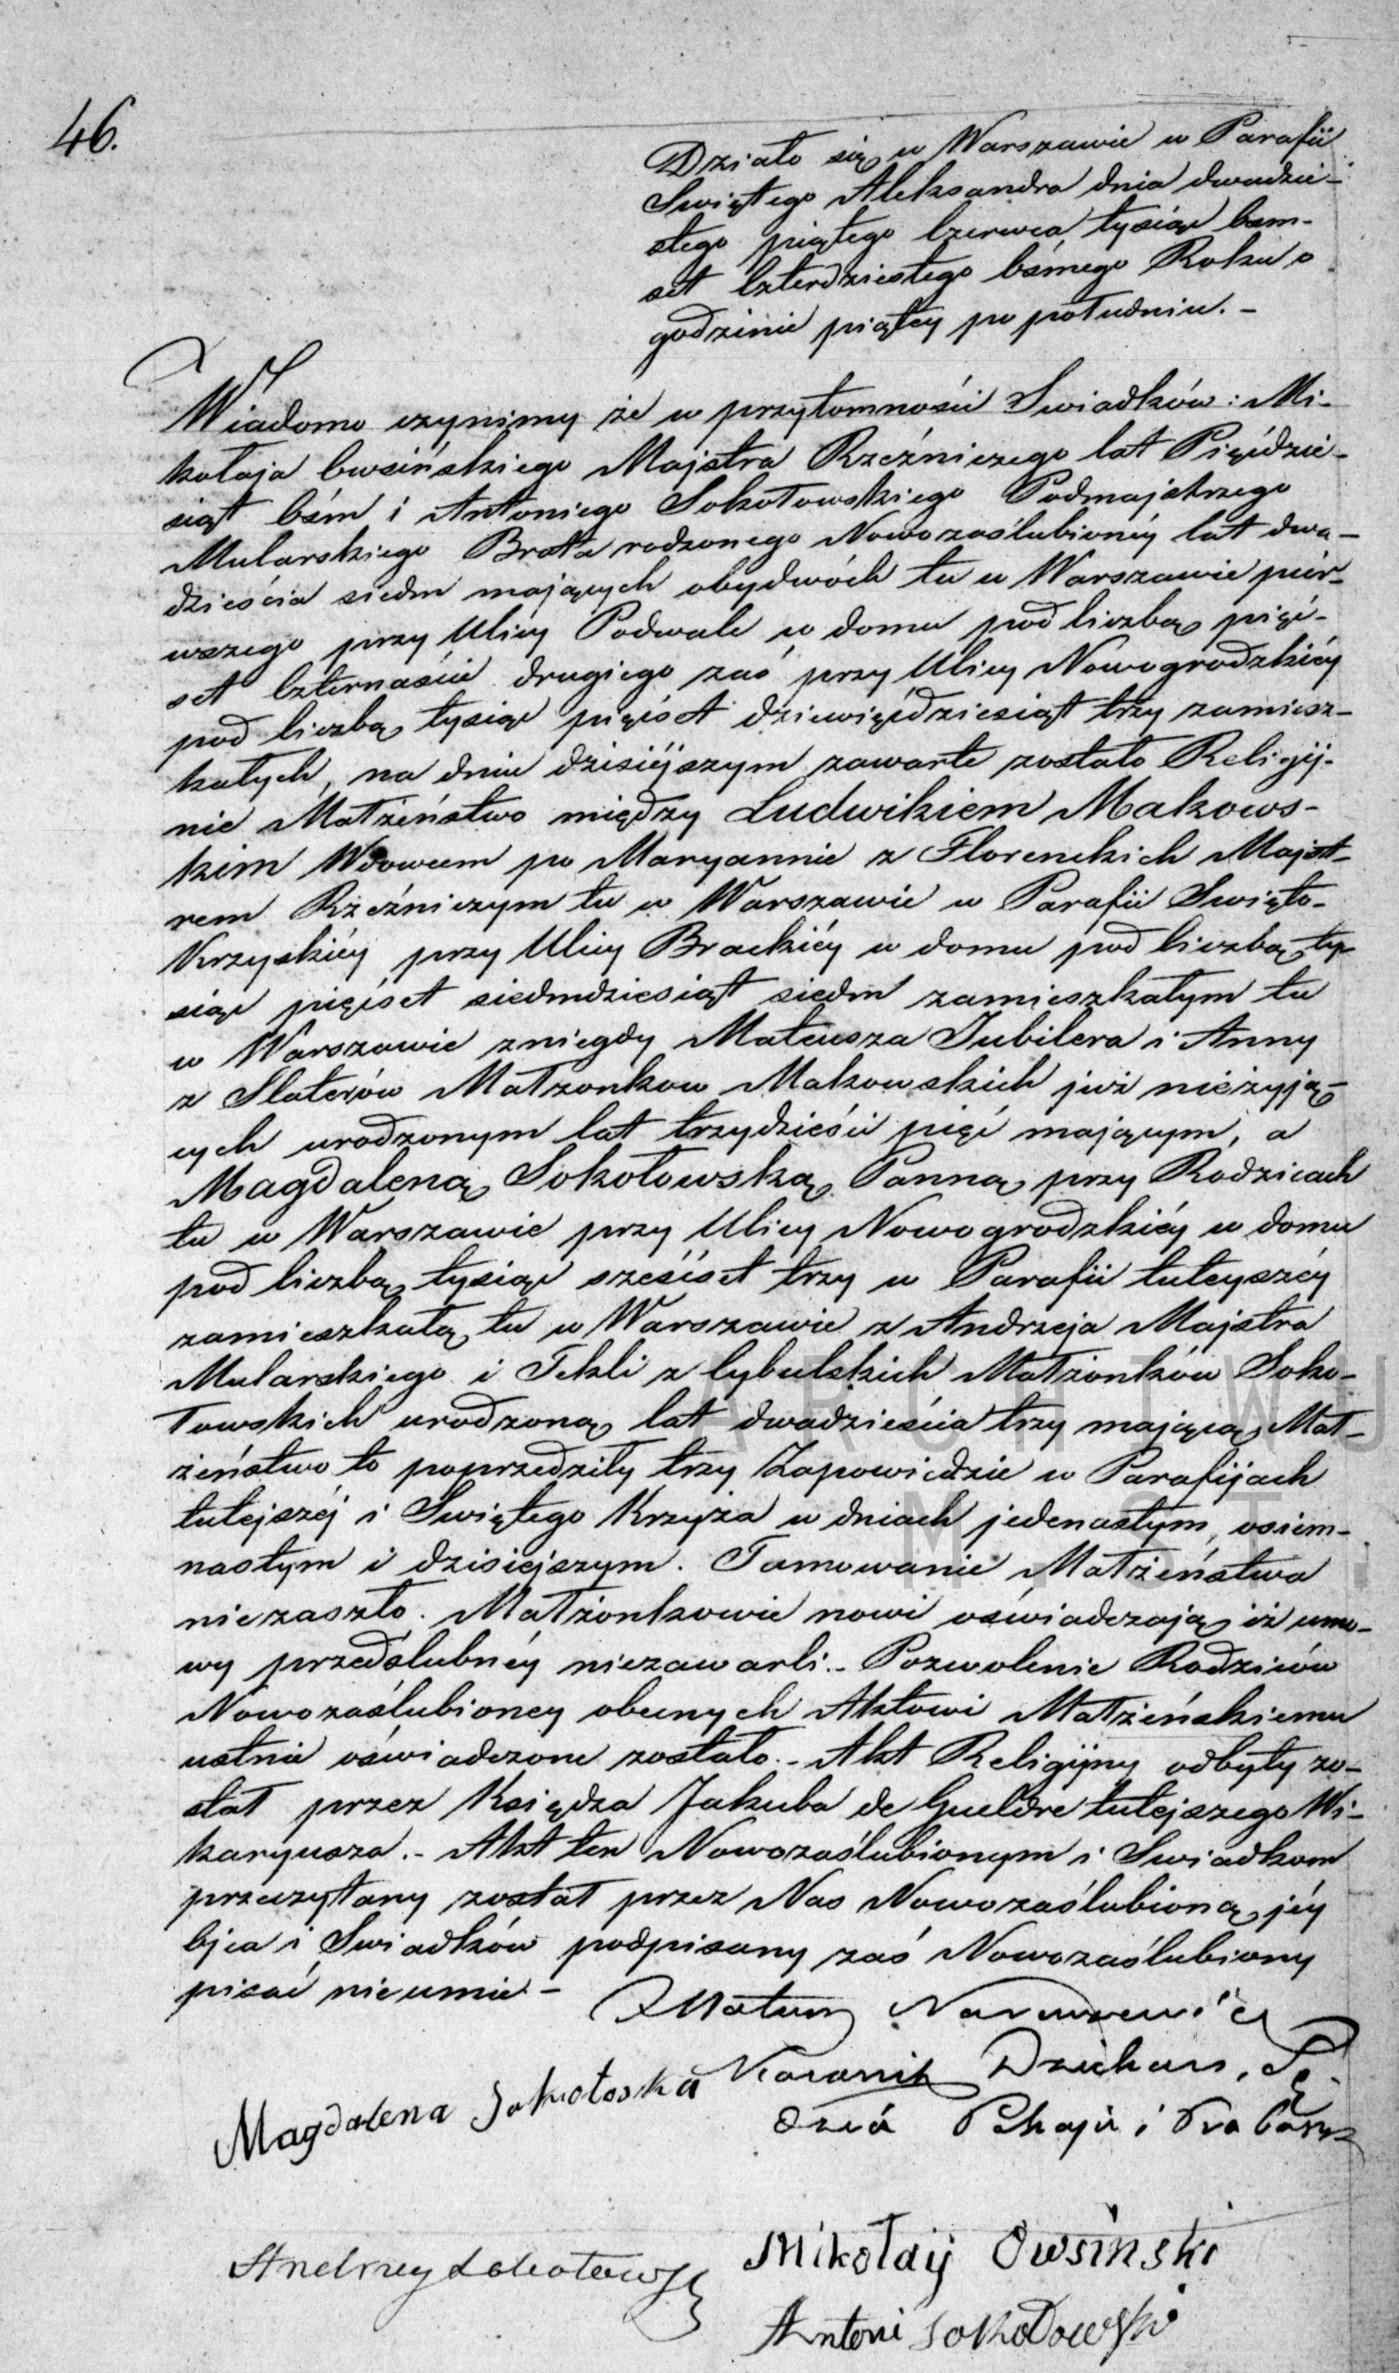 46.
Działo się w Warszawie w Parafii
Swiętego Aleksandra dnia dwudzie-
stego piątego Czerwca tysiąc Osm-
set Czterdziestego Osmego Roku o
godzinie piątey po południu. -
Wiadomo czynimy że w przytomności Swiadków: Mi-
kołaja Owsińskiego Majstra Rzeźniczego lat Pięćdzie-
siąt Ośm i Antoniego Sokołowskiego Podmajstrzego
Mularskiego Brata rodzonego Nowozaślubionéy lat dwa-
dzieścia siedm mających obydwóch tu w Warszawie piér-
wszego przy Ulicy Podwale w domu pod liczbą pięć-
set Czternaście drugiego zaś przy Ulicy Nowogrodzkiéy
pod liczbą tysiąc pięćset dziewięćdziesiąt trzy zamiesz-
kałych, na dniu dzisiéjszym zawarte zostało Religij-
nie Małżeństwo między Ludwikiem Makows-
kim Wdowcem po Maryannie z Florenckich Majst-
rem Rzeźniczym tu w Warszawie w Parafii Swięto-
Krzyskiéy przy Ulicy Brackiéy w domu pod liczbą ty-
siąc pięćset siedmdziesiąt siedm zamieszkałym tu
w Warszawie z niegdy Mateusza Jubilera i Anny
z Slaterów Małżonkow Makowskich już nieżyją-
cych urodzonym lat trzydzieści pięć mającym, a
Magdaleną Sokołowską Panną przy Rodzicach
tu w Warszawie przy Ulicy Nowogrodzkiéy w domu
pod liczbą tysiąc sześćset trzy w Parafii tuteyszéy
zamieszkałą, tu w Warszawie z Andrzeja Majstra
Mularskiego i Tekli z Cybulskich Małżonków Soko-
łowskich urodzoną lat dwadzieścia trzy mającą. Mał-
żeństwo to poprzedziły trzy Zapowiedzie w Parafijach
tutejszéj i Swiętego Krzyża w dniach jedenastym, osiem-
nastym i dzisiejszym. Tamowanie Małżeństwa
nie zaszło. Małżonkowie nowi oświadczają iż umo-
wy przedślubnéy niezawarli. - Pozwolenie Rodziców
Nowozaślubioney obecnych Aktowi Małżeńskiemu
ustnie oświadczone zostało. - Akt Religijny odbyty zo-
stał przez Księdza Jakuba de Gueldre tutejszego Wi-
karyusza. - Akt ten Nowozaślubionym i Swiadkom
przeczytany został przez Nas Nowozaślubioną, jéy
Ojca i Swiadków podpisany zaś Nowozaślubiony
pisać nie umie -
Kanonik Dziekan, Sę-
dzia Pokoju i
Magdalena Sokołoska
Mikołaij Owsinski
Andrzey Sokołowski
Antoni Sokołowski